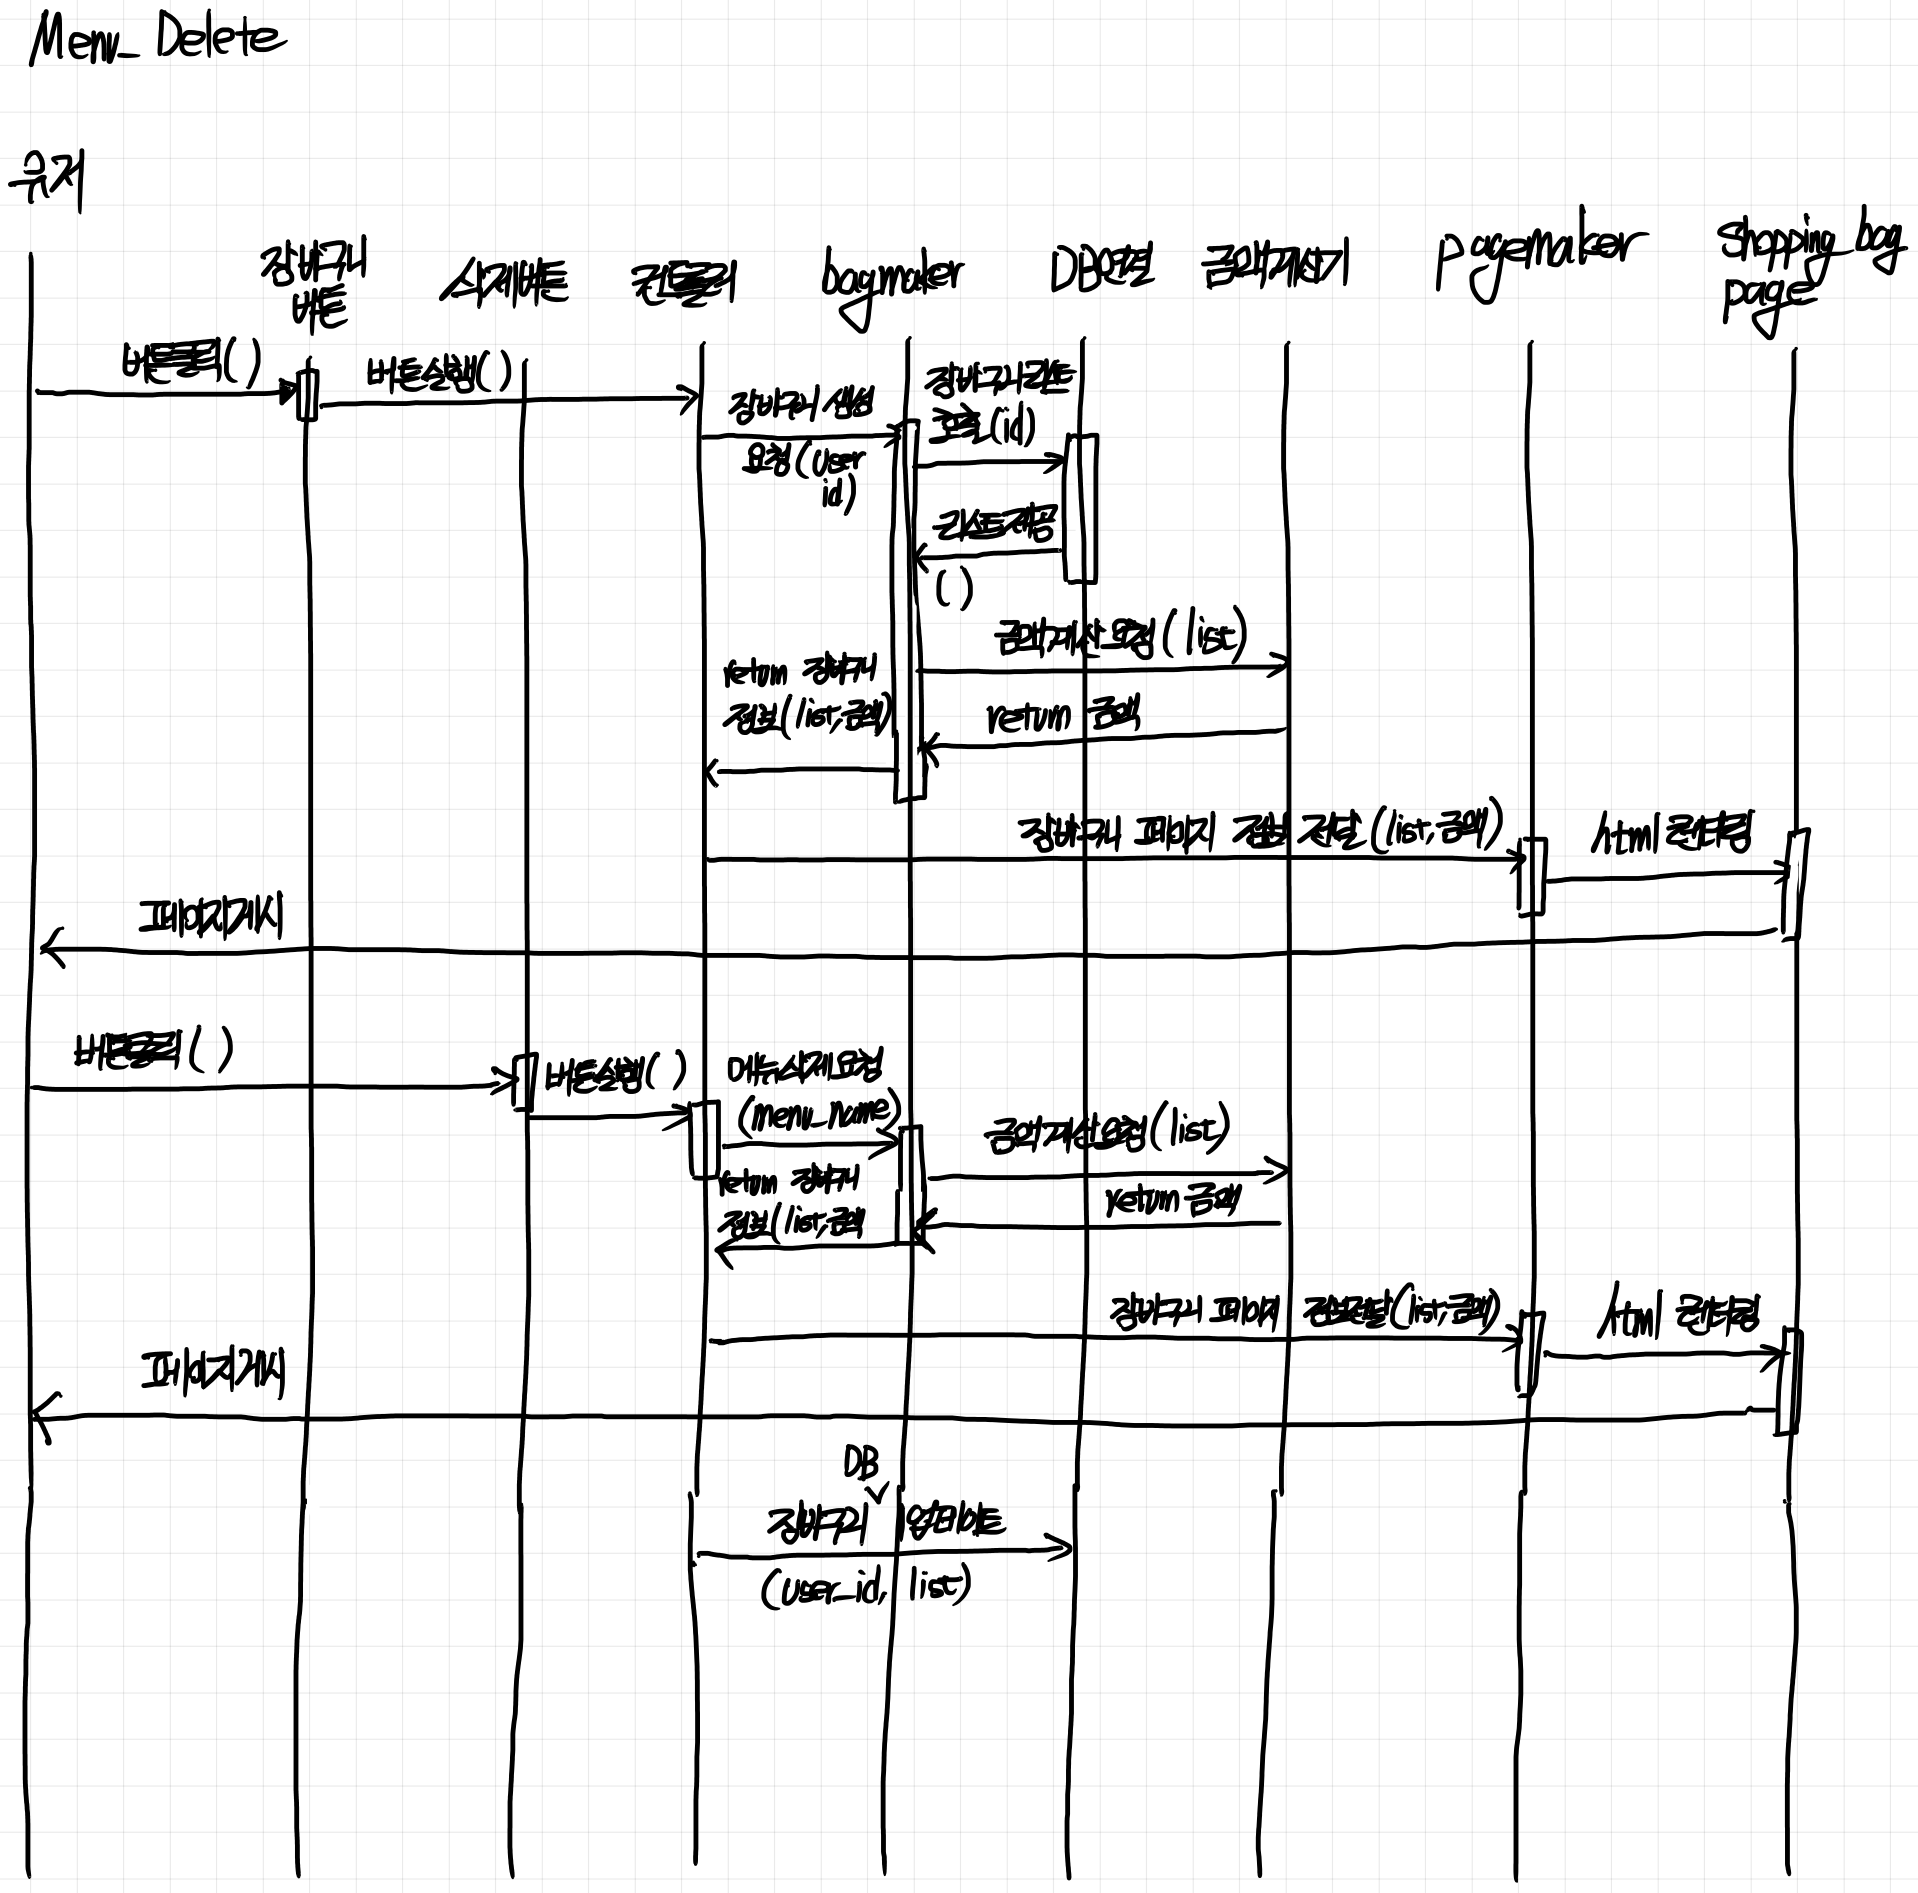 Menu_Delete
유저
장바구니
버튼
삭제버튼
컨트롤러
bagmaker
DB연결
금액계산기
pagemaker
Shopping_bag
page
버튼클릭()
버튼실행()
장바구니 생성
요청(User
id)
장바구니리스트
호출(id)
리스트제공
()
금액계산 요청(list)
return 장바구니
정보(list,금액)
return 금액
장바구니 페이지 정보 전달(list,금액)
html 렌더링
페이지게시
버튼클릭()
버튼실행()
메뉴삭제요청
(menu_name)
금액계산요청(list)
return 장바구니
정보(list,금액
return 금액
장바구니 페이지 정보전달(list,금액)
html 렌더링
페이지게시
DB
장바구니 업데이트
(user_id, list)